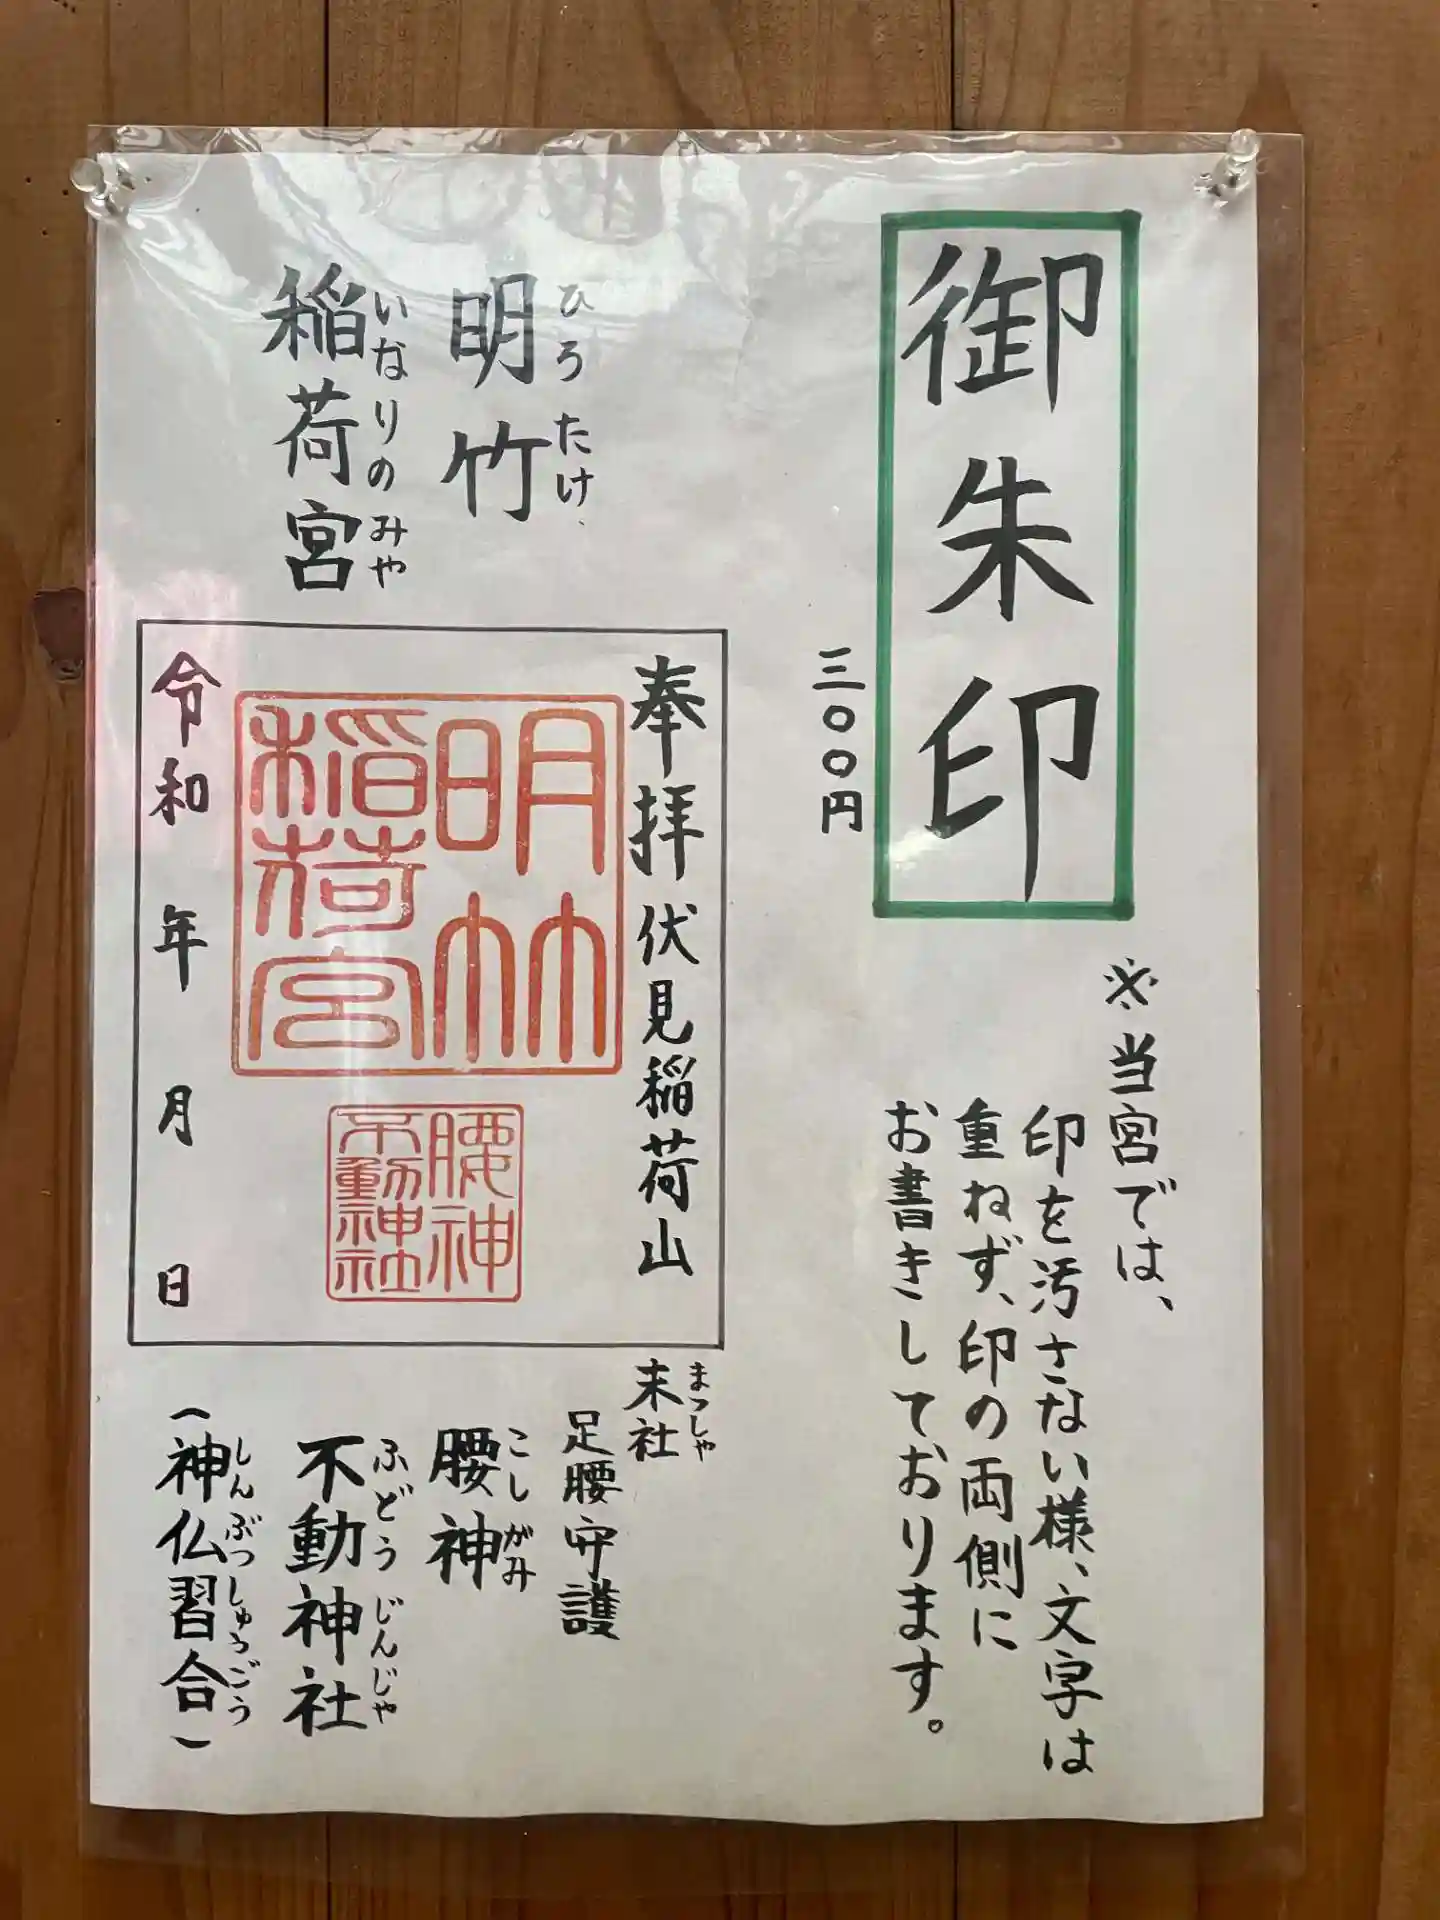 御朱印
三〇〇円
※当宮では、
印を汚さない様、文字は
重ねず、印の両側に
お書きしております。
ひろたけ
明竹
いなりのみや
稲荷宮
奉拝 伏見稲荷山
明竹
稲荷宮
腰神
不動神社
令和 年 月 日
まっしゃ
末社
足腰守護
こしがみ
腰神
ふどうじんじゃ
不動神社
しんぶつしゅうごう
(神仏習合)